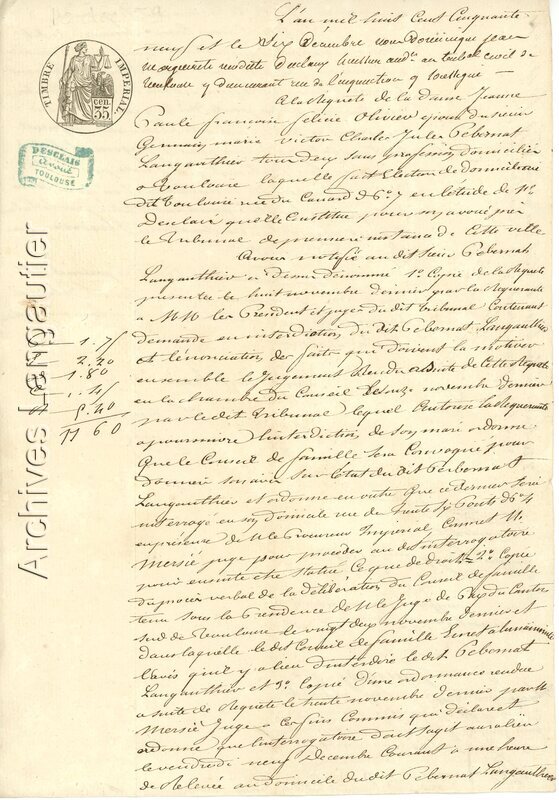 L'an mil huit cent cinquante
neuf et le Six Décembre nous Dominique
civil de
Toulouse y demeurant rue de l'inquisition
A la Requête de la dame Jeanne
Paule françoise félicie Olivier épouse du sieur
Germain marie victor Charles Jules Pebernat
Langauthier tous deux sans profession domiciliés
à Toulouse laquelle fait Election de domicile au
dit Toulouse rue du Canard n° 7 en l'étude de Me
Desclais qu'elle Constitue pour son avoué près
le Tribunal de première instance de Cette ville
Avons notifié au dit sieur Pebernat
Langauthier ci dessus dénommé 1° Copie de la Requête
présentée le huit novembre dernier par la Requérante
à MM les Président et juges du dit tribunal Contenant
demande en interdiction du dit Pebernat Langauthier
et l'énonciation des faits qui doivent la motiver
ensemble le Jugement Rendu à suite de Cette Requête
en la chambre du Conseil le onze novembre dernier
par le dit Tribunal lequel autorise la Requérante
à poursuivre l'interdiction de son mari ordonne
Que le Conseil de famille sera Convoqué pour
donner son avis sur l'état du dit Pebernat
Langauthier et ordonne en outre que ce dernier sera
interrogé en son domicile rue des trente Six Ponts n° 4
en présence de M le Procureur Impérial Commet M.
Mersié juge pour procéder au dit interrogatoire
pour ensuite être statué Ce que de droit 2° Copie
du procès verbal de la délibération du Conseil de famille
tenu sous la Présidence de M le Juge de Paix du Canton
sud de Toulouse le vingt deux novembre dernier et
dans laquelle le dit Conseil de famille émet à l'unanimité
l'avis qu'il y a lieu d'interdire le dit Pebernat
Langauthier et 3° Copie d'une ordonnance rendue
à suite de Requête le trente novembre dernier par M
Mersié Juge à ces fins Commis qui déclare et
ordonne que l'interrogatoire dont s'agit aura lieu
le vendredi neuf Décembre Courant à une heure
de Relevée au domicile du dit Pebernat Langauthier
TIMBRE IMPÉRIAL
35 cen.
DESCLAIS
avoué
TOULOUSE
1.75
2.20
1.80
8.40
11 60
Archives Langautier